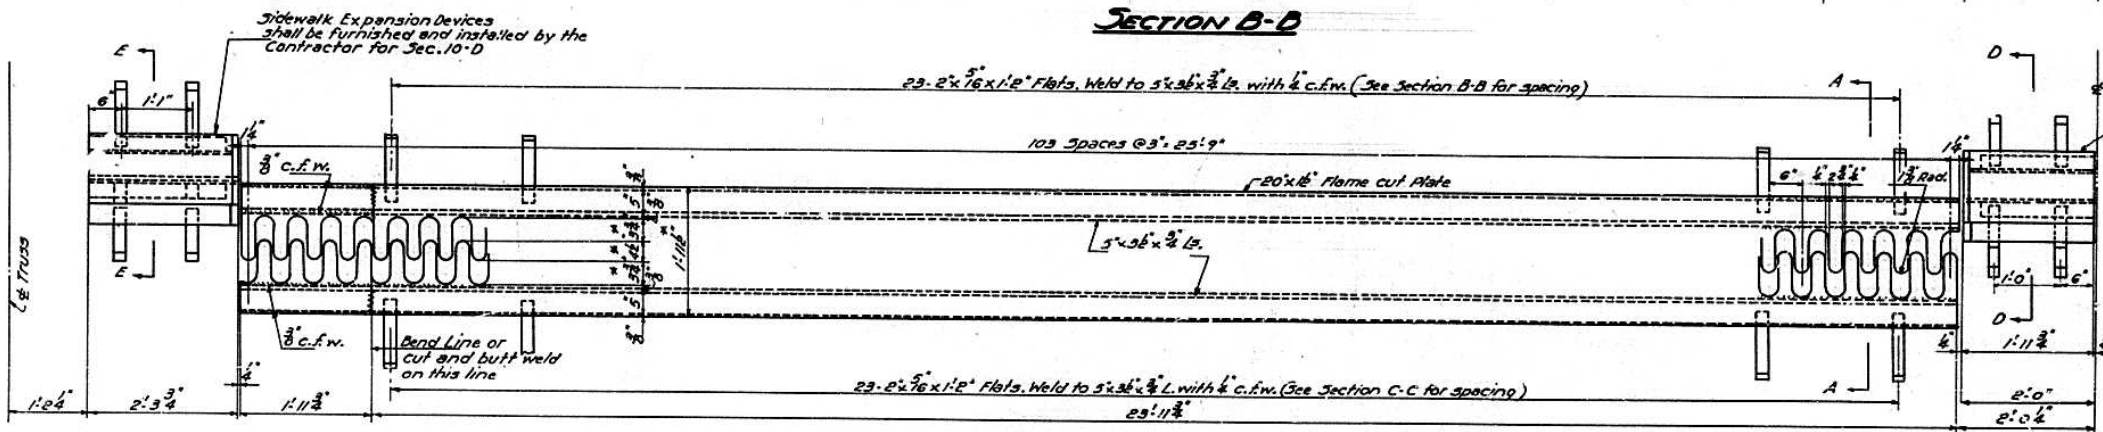 SECTION B-B
Sidewalk Expansion Devices
shall be furnished and installed by the
Contractor for Sec. 10-D
E
D
23 - 2" x 5/16 x 1'-2" Flats. Weld to 5"x3½"x¾ Ls. with ¼" c.f.w. (See Section B-B for spacing)
A
6"
1'-1"
1¼"
103 Spaces @ 3" = 25'-9"
1¼"
3/8" c.f.w.
20"x1½" Flame cut Plate
6"
1¾" Rad.
5"
5"x3½"x¾" Ls.
1'-11½"
E
℄ Truss
1'-0"
6"
D
5"
3/8" c.f.w.
Bend Line or
cut and butt weld
on this line
¼"
¼"
1'-11¾"
23 - 2"x 5/16 x 1'-2" Flats. Weld to 5"x3½"x¾ L. with ¼" c.f.w. (See Section C-C for spacing)
A
1'-2¼"
2'-3¾"
1'-11¾"
23'-11¾"
2'-0"
2'-0¼"